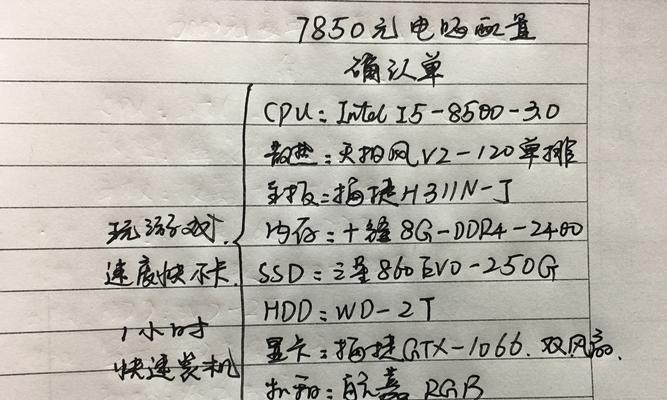 7850元电脑配置
确认单
CPU：Intel I5-8500-3.0
散热：天拍风V2-120单排
主板：梅捷H311N-J
内存：十铨8G-DDR4-2400
SSD：三星860EVO-250G
HDD：WD-2T
显卡：梅捷GTX-1066.双风扇.
机箱：航嘉RGB
玩游戏
速度快不卡.
1小时
快速装机